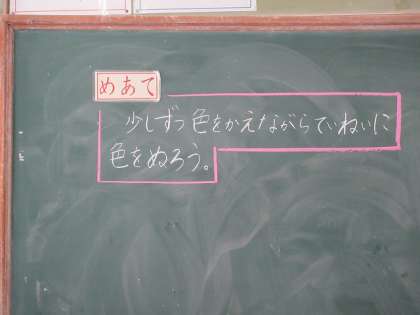 めあて
少しずつ色をかえながらていねいに
色をぬろう。